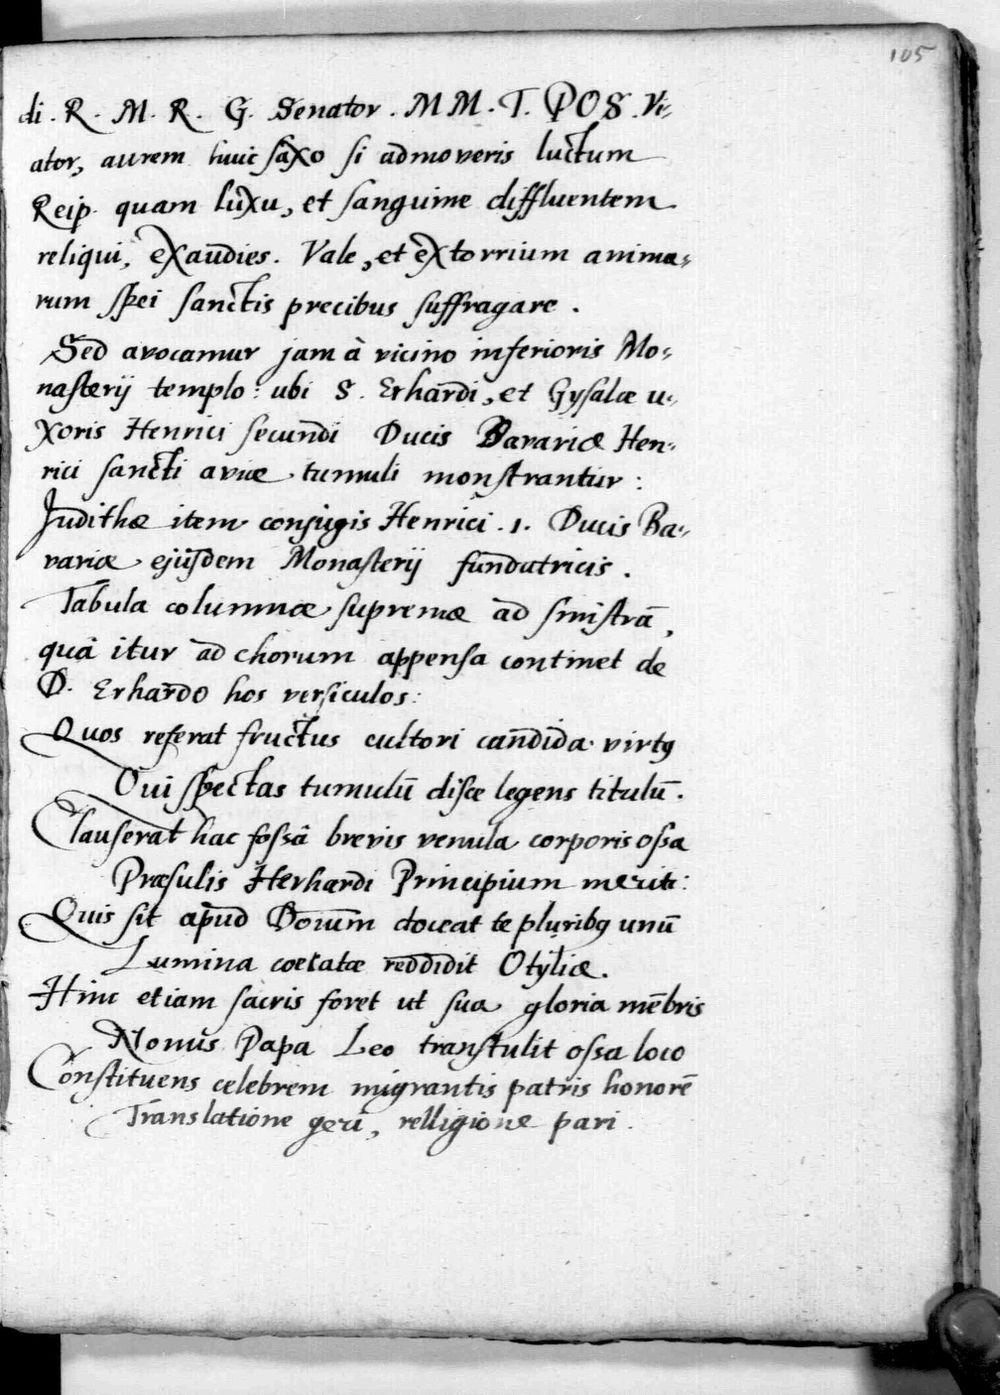 105
di . R. M. R. G. Senator . MM. T. POS. Vi-
ator, aurem huic saxo si admoveris luctum
Reip. quam luxu, et sanguine diffluentem
reliqui, exaudies. Vale, et extorrium anima-
rum spei sanctis precibus suffragare .
Sed avocamur jam à vicino inferioris Mo-
nasterij templo: ubi S. Erhardi, et Gysalæ u-
xoris Henrici secundi Ducis Bavariæ Hen-
rici sancti aviæ tumuli monstrantur :
Judithæ item conjugis Henrici . 1. Ducis Ba-
variæ ejusdem Monasterij fundatricis .
Tabula columnæ supremæ ad sinistrā,
quâ itur ad chorum appensa continet de
D. Erhardo hos versiculos:
Quos referat fructus cultori candida virtꝰ
Qui spectas tumulū disce legens titulū.
Clauserat hac fossâ brevis venula corporis ossa
Præsulis Herhardi Principium meriti:
Quis sit apud Domm doceat te pluribꝰ unū
Lumina coecatæ reddidit Otyliæ.
Hinc etiam sacris foret ut sua gloria mēbris
Nonus Papa Leo transtulit ossa loco
Constituens celebrem migrantis patris honorē
Translatione geri, relligione pari .